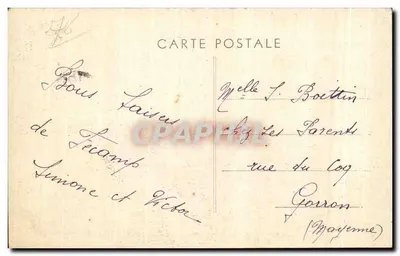 CARTE POSTALE
Bons baisers
de Fécamp
Simone et Victor
Melle S. Boittin
chez ses Parents
rue du Coq
Gorron
(Mayenne)